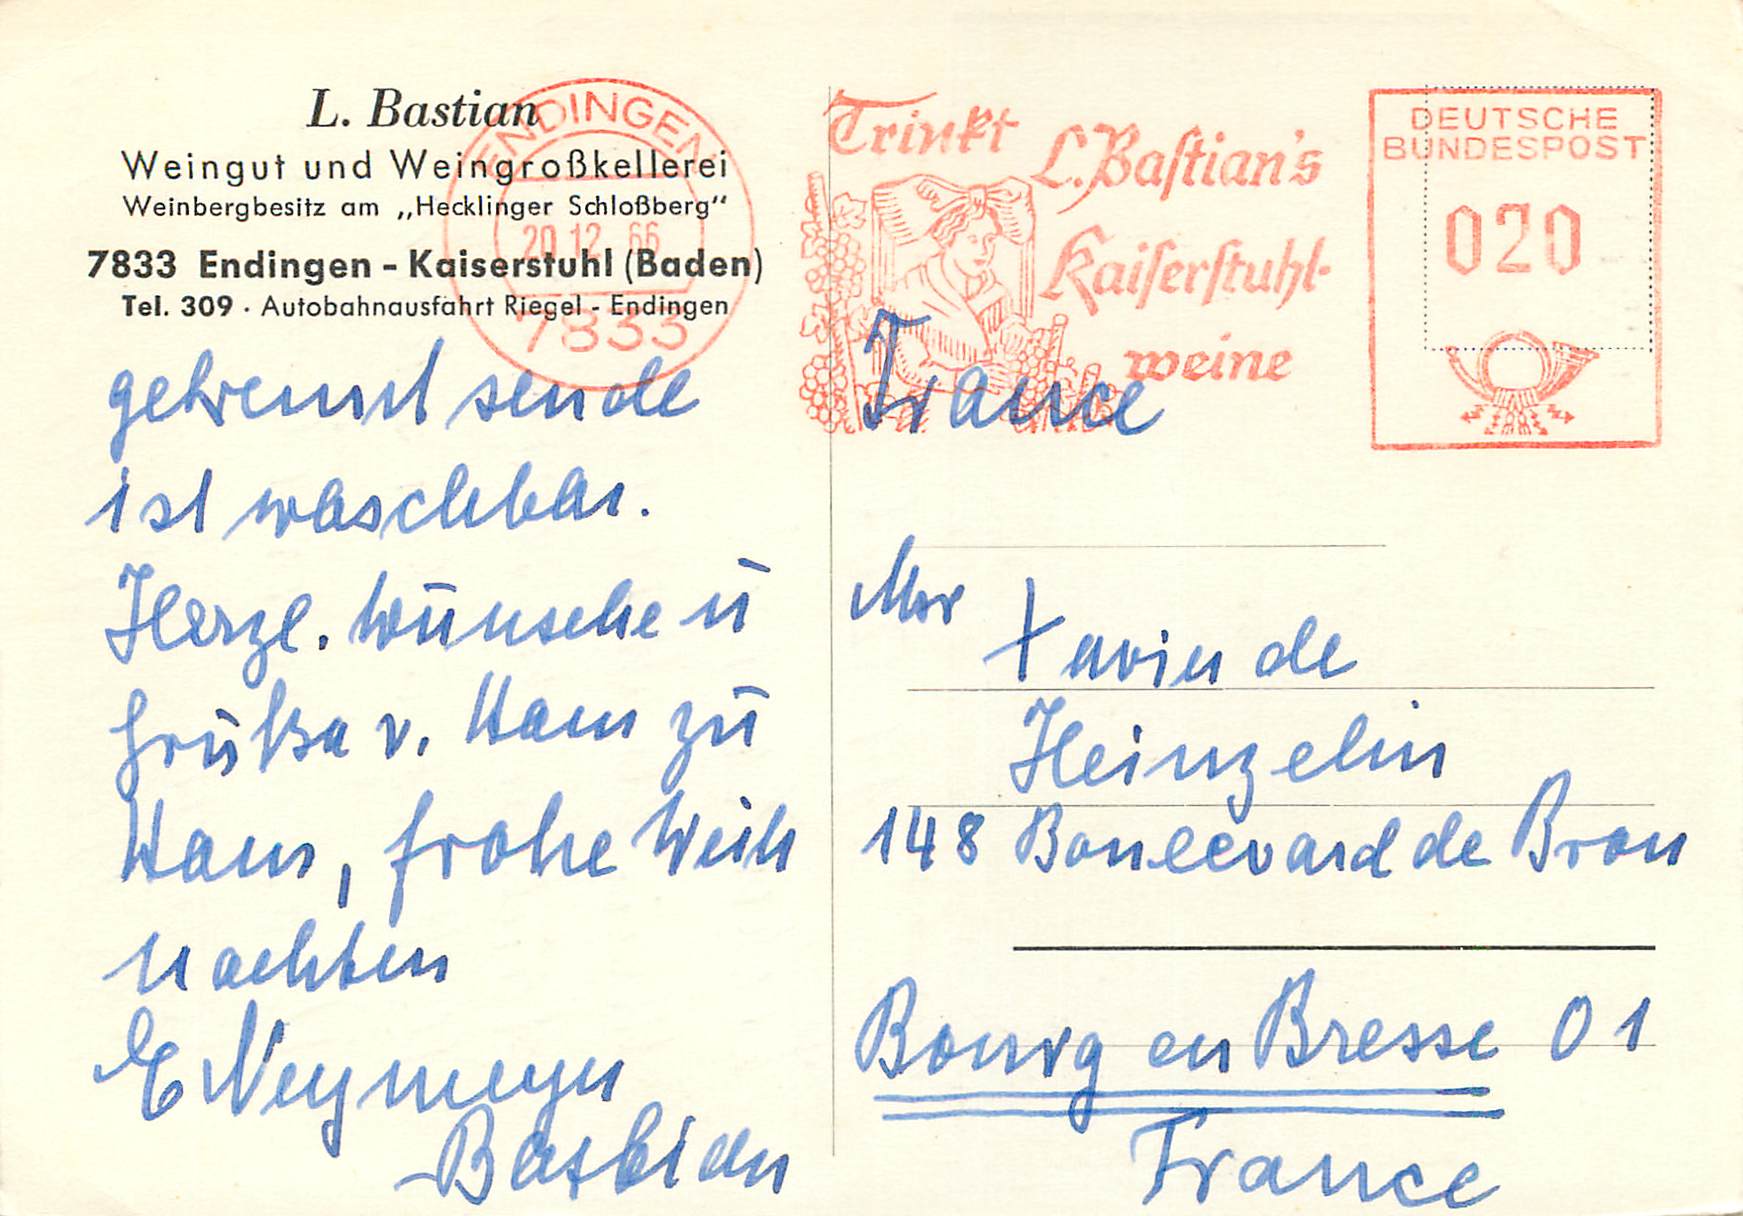 L. Bastian
Weingut und Weingroßkellerei
Weinbergbesitz am „Hecklinger Schloßberg"
7833 Endingen - Kaiserstuhl (Baden)
Tel. 309 · Autobahnausfahrt Riegel - Endingen
ENDINGEN
20.12.66
7833
Trinkt L. Bastian's
Kaiserstuhl-
weine
DEUTSCHE
BUNDESPOST
020
getrennt sende
ist waschbar.
Herzl. Wünsche u
Grüße v. Haus zu
Haus, frohe Weih
nachten
E Neymeyer
Bastian
France
Mr
Xavier de
Heinzelin
148 Boulevard de Brou
Bourg en Bresse 01
France